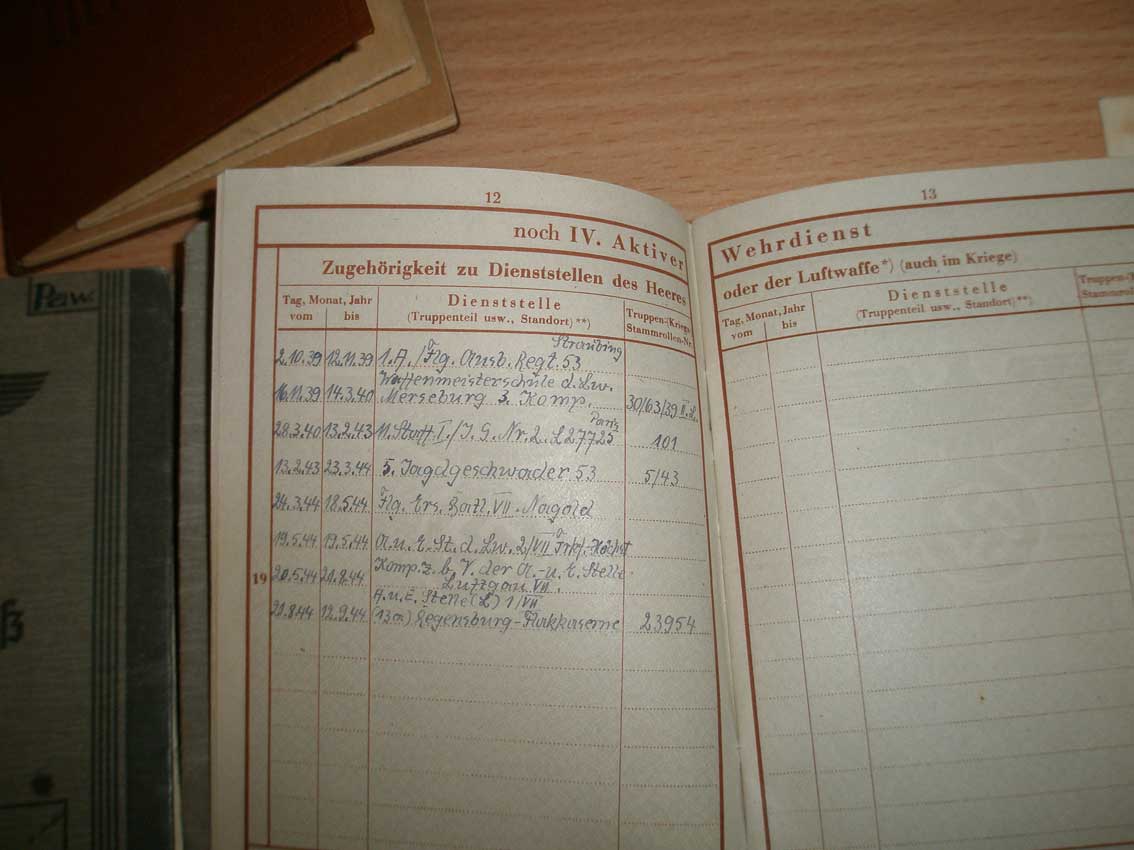 12
noch IV. Aktiver
Zugehörigkeit zu Dienststellen des Heeres
Tag, Monat, Jahr
vom bis
Dienststelle
(Truppenteil usw., Standort)**)
Truppen-(Kriegs-
Stammrollen-Nr.
Straubing
2.10.39 12.11.39 1.A./Flg. Ausb. Regt. 53
Waffenmeisterschule d. Lw.
16.11.39 14.3.40 Merseburg 3. Komp. 30/63/39 II.L.
Paris
28.3.40 13.2.43 I./J.G. Nr. 2 L 27725 101
13.2.43 23.3.44 5. Jagdgeschwader 53 5/43
24.3.44 18.5.44 Flg. Ers. Batl. VII Nagold
19.5.44 19.5.44 A.u.E.St.d.Lw. 2/VII Höchst
Komp. z.b.V. der A.-u. E. Stelle
19 20.5.44 21.8.44 Luftgau VII.
A.u.E. Stelle (L) 1/VII
21.8.44 12.9.44 (13a) Regensburg-Flakkaserne 23954
13
Wehrdienst
oder der Luftwaffe*) (auch im Kriege)
Tag, Monat, Jahr
vom bis
Dienststelle
(Truppenteil usw., Standort)**)
Truppen-(
Stammrolle
Paw.
ß